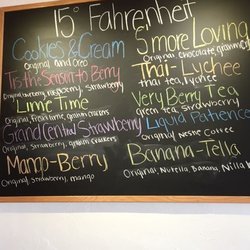 15° Fahrenheit
Cookies & Cream
Original and Oreo
Tis the Season to Berry
Original, blueberry, raspberry, strawberry
Lime Time
Original, fresh lime, graham crackers
Grand Central Strawberry
Original, strawberry, graham crackers
Mango-Berry
Original, strawberry, mango
S'more Loving
Original, chocolate, graham
Thai-Lychee
thai tea, lychee
Very Berry Tea
Green tea, strawberry
Liquid Patience
Original, Nestle Coffee
Banana-Tella
Original, Nutella, Banana, Nilla